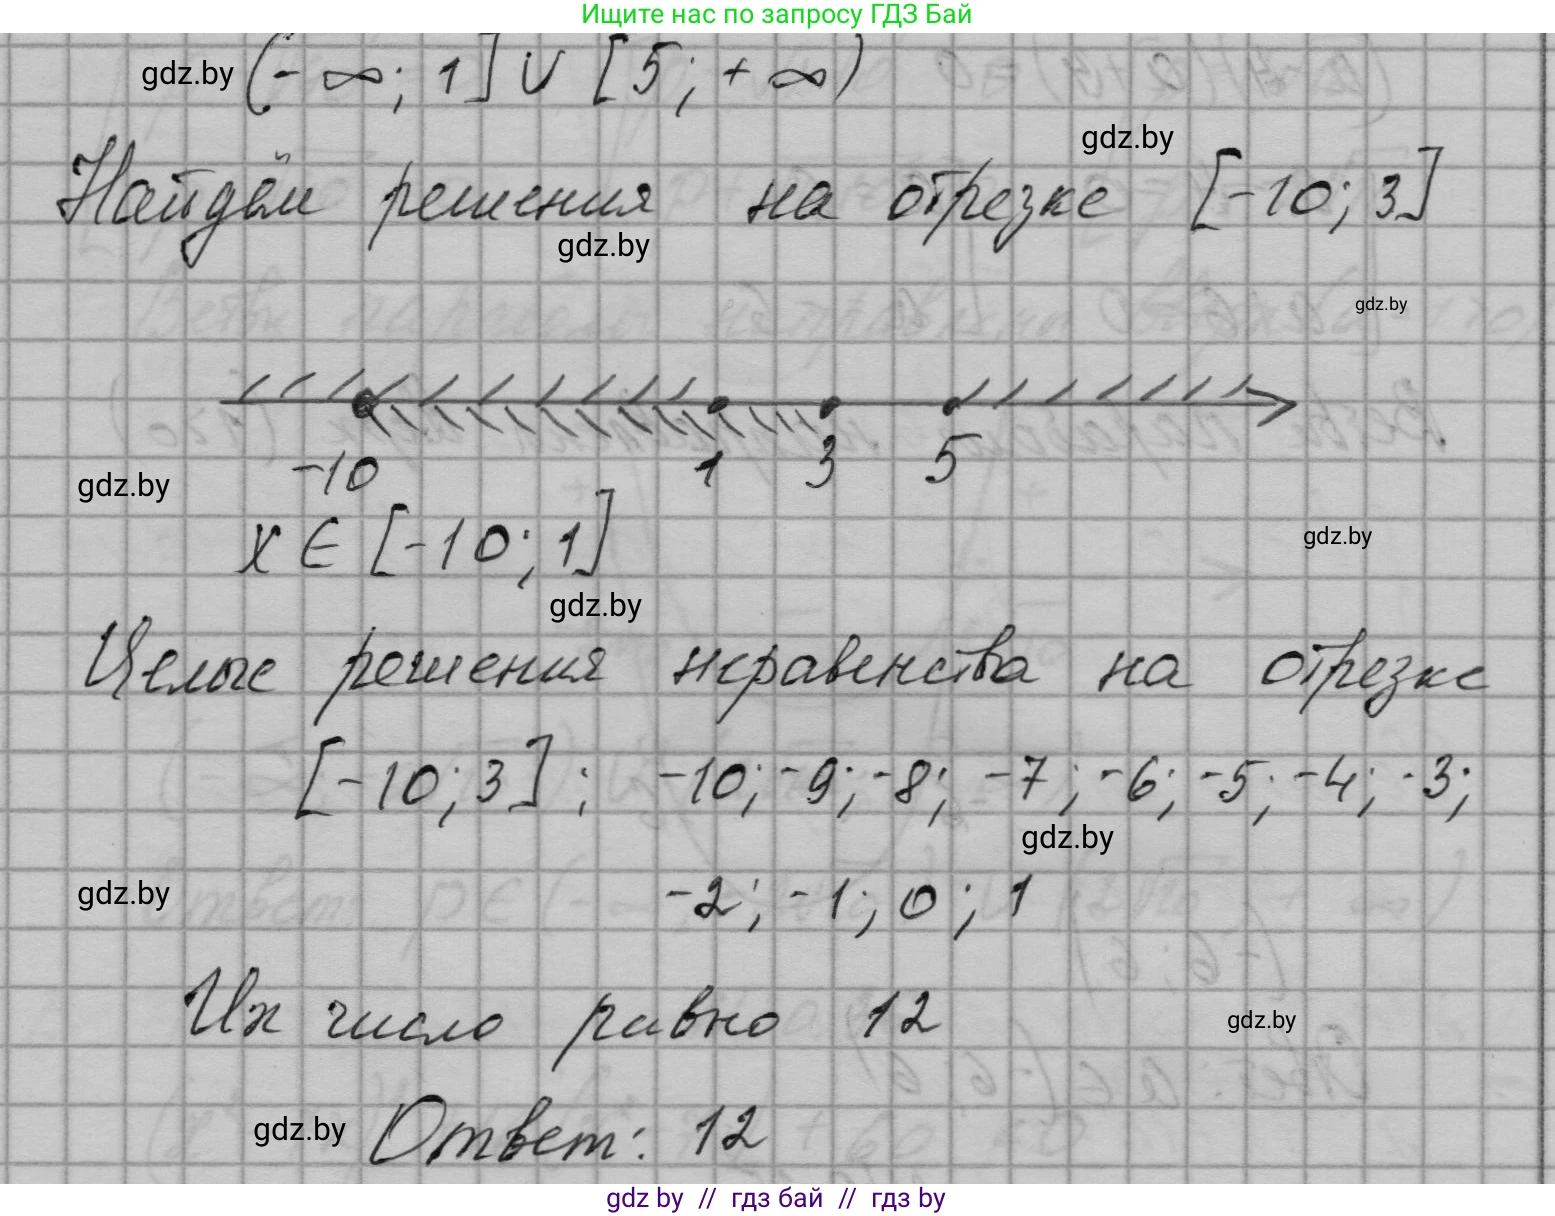 Ищите нас по запросу ГДЗ Бай
gdz.by (-∞; 1] ∪ [5; +∞)
gdz.by
Найдём решения на отрезке [-10; 3]
gdz.by
gdz.by
-10 1 3 5
gdz.by
x ∈ [-10; 1]
gdz.by
gdz.by
Целые решения неравенства на отрезке
[-10; 3]: -10; -9; -8; -7; -6; -5; -4; -3;
gdz.by
gdz.by
-2; -1; 0; 1
Их число равно 12
gdz.by
gdz.by Ответ: 12
gdz by // гдз бай // гдз by